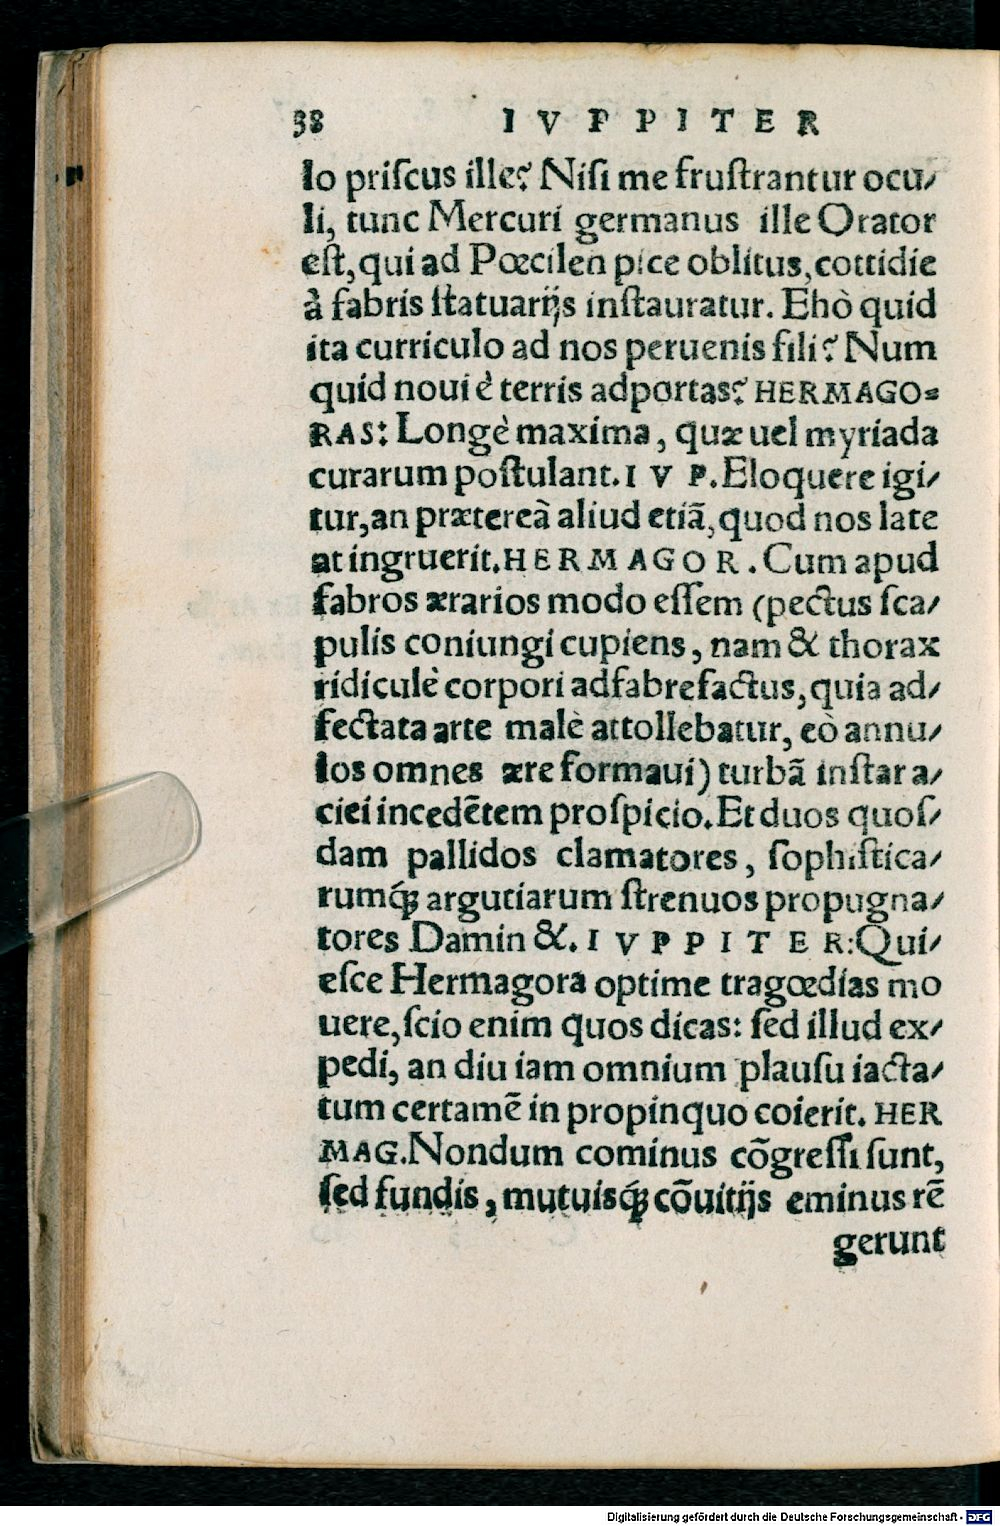 38 IVPPITER
lo priſcus ille? Niſi me fruſtrantur ocu/
li, tunc Mercuri germanus ille Orator
eſt, qui ad Pœcilen pice oblitus, cottidie
à fabris ſtatuarijs inſtauratur. Ehò quid
ita curriculo ad nos peruenis fili? Num
quid noui è terris adportas? HERMAGO=
RAS: Longè maxima, quæ uel myriada
curarum poſtulant. IVP. Eloquere igi/
tur, an prætereà aliud etiã, quod nos late
at ingruerit. HERMAGOR. Cum apud
fabros ærarios modo eſſem (pectus ſca/
pulis coniungi cupiens, nam & thorax
ridiculè corpori adfabrefactus, quia ad/
fectata arte malè attollebatur, eò annu/
los omnes ære formaui) turbã inſtar a/
ciei incedẽtem proſpicio. Et duos quoſ/
dam pallidos clamatores, ſophiſtica/
rumq́ꝫ argutiarum ſtrenuos propugna/
tores Damin &. IVPPITER: Qui/
eſce Hermagora optime tragœdias mo
uere, ſcio enim quos dicas: ſed illud ex/
pedi, an diu iam omnium plauſu iacta/
tum certamẽ in propinquo coierit. HER
MAG. Nondum cominus cõgreſſi ſunt,
ſed fundis, mutuisq́ꝫ cõuitijs eminus rẽ
gerunt
Digitalisierung gefördert durch die Deutsche Forschungsgemeinschaft - DFG